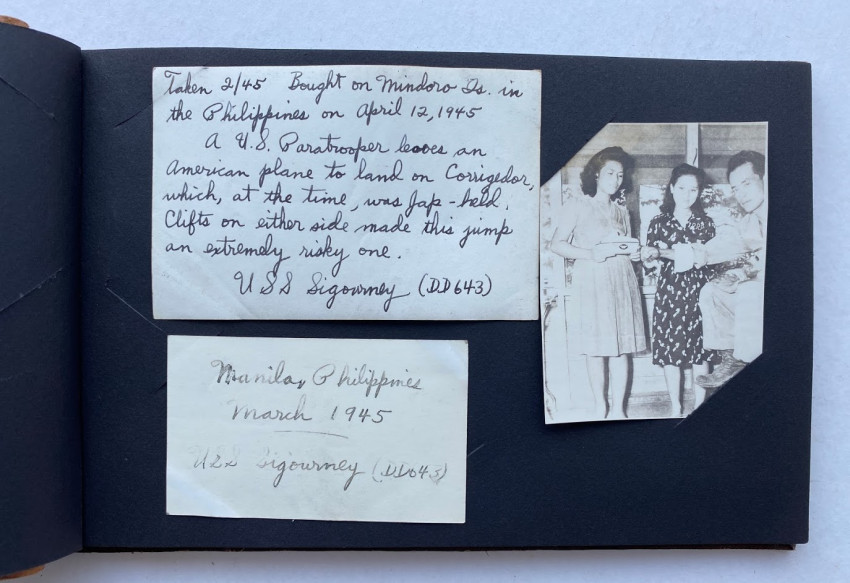 Taken 2/45 Bought on Mindoro Is. in
the Philippines on April 12, 1945
A U.S. Paratrooper leaves an
American plane to land on Corrigedor,
which, at the time, was Jap-held.
Clifts on either side made this jump
an extremely risky one.
USS Sigourney (DD643)
Manila, Philippines
March 1945
USS Sigourney (DD643)